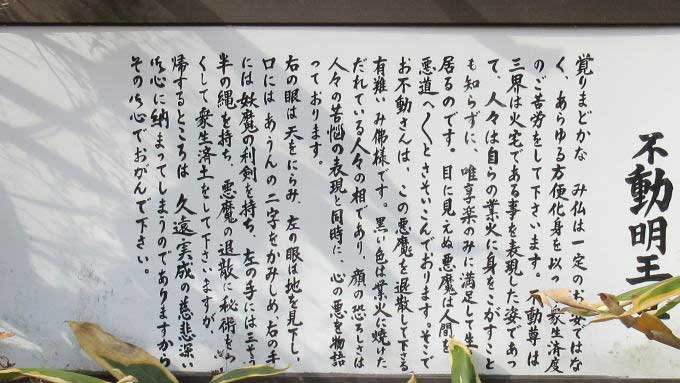 不動明王
覚りまどかな み仏は一定のお姿はな
く、あらゆる方便化身を以つ衆生済度
のご苦労をして下さいます。不動尊は
三界は火宅である事を表現した姿であっ
て、人々は自らの業火に身をこがすこと
も知らずに、唯享楽のみに満足して生
居るのです。目に見えぬ悪魔は人間を
悪道へ〱とさそいこんでおります。そこで
お不動さんは、この悪魔を退散して下さる
有難いみ佛様です。黒い色は業火に焼けた
だれている人々の相であり、顔の恐ろしさは
人々の苦悩の表現と同時に、心の悪を物語
っております。
右の眼は天をにらみ、左の眼は地を見下し、
口にはあうんの二字をかみしめ、右の手
には妖魔の利剣を持ち、左の手には三そう
半の縄を持ち、悪魔の退散に秘術をつ
くして衆生済土をして下さいますが
帰するところは 久遠実成の慈悲深い
み心に納まってしまうのでありますから
そのみ心でおがんで下さい。